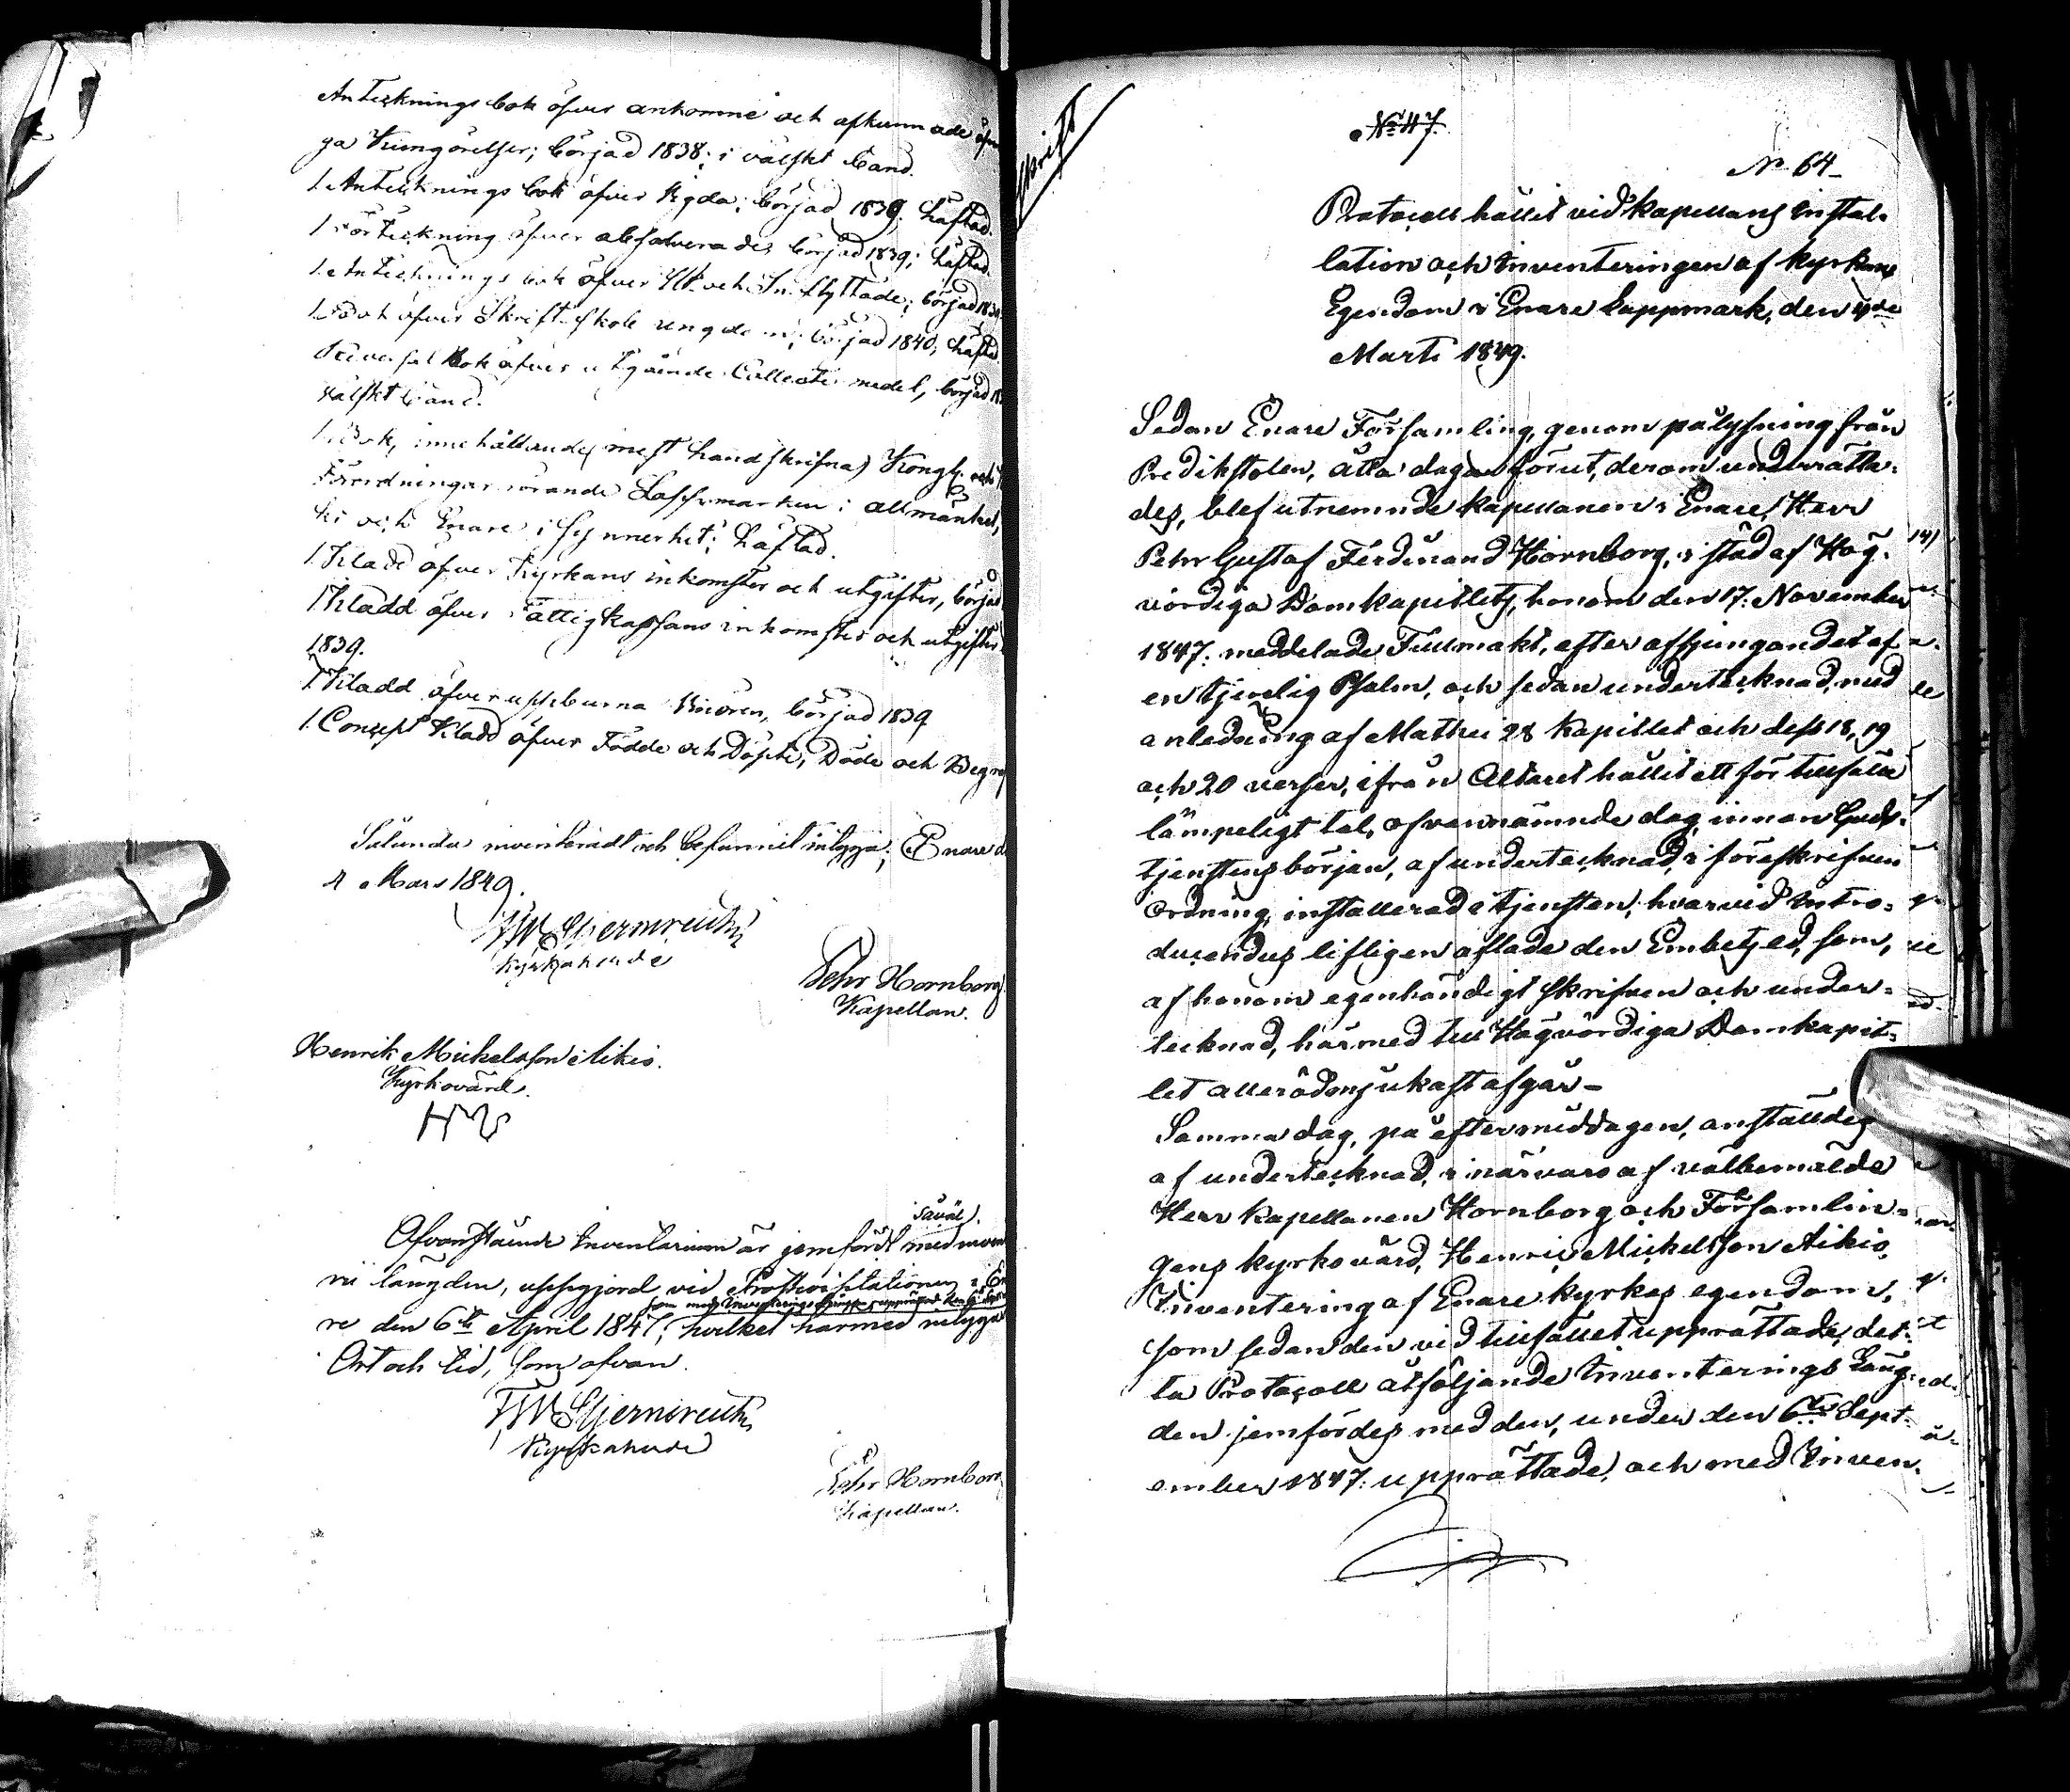 Anteknings bok öfver ankomne och afkunnade
ga Kungörelser; börjad 1838; i välskt band.
1. Anteknings bok öfver Lysda; börjad 1839; häftad.
1 Förteckning öfver absolverades börjad 1839; häftad.
1. Antecknings bok öfver Ut och In flyttade; börjad 1839
1 Bok öfver Skriftskole ungdomen; börjad 1840; häftad.
bok öfver utgående Collecte medel, börjad
välskt band.
1 Bok, innehållande (mest handskrifna) Kongl. och
Förordningar rörande Lappmarken i allmänhet,
och Enare i synnerhet; häftad.
1. Kladd öfver Kyrkans inkomster och utgifter, börjad
1 Kladd öfver Fattigkassans inkomster och utgifter
1839.
1. Kladd öfver uppburna börjad 1839
1. Concept Kladd öfver Födde och Döpte, Döde och Begrof
Sålunda inventeradt och befunnit intyga; Enare d.
4 Mars 1849.
Kyrkoherde
Pehr Hornborg
Kapellan.
Henrik Mickelsson Aikio.
Kyrkovärd.
såväl
Ofvanstående Inventarium är jemfördt med inven
rii längden, uppgjord vid Prostvisitationen i Ena
som med Inventerings upprättad den 6
re den 6te April 1847; hvilket härmed intyga
Ort och tid, som ofvan.
Kyrkoherde
Pehr Hornborg
Kapellan.
skrift
No 47.
No 64
Protocoll hållit vid Kapellans Instal-
lation och Inventeringen af kyrkans
Egendom i Enare Lappmark, den 4de
Marti 1849.
Sedan Enare Församling, genom pålysning från
Predikstolen, åtta dagar förut, derom underrätta-
des, blef utnemnde Kapellanen i Enare, Herr
Pehr Gustaf Ferdinand Hornborg, i stöd af Hög-
vördiga Domkapitlets, honom den 17: November
1847: meddelade Fullmakt, efter afsjungandet af
en tjenlig Psalm, och sedan undertecknad, med
anledning af Mathei 28 Kapitlet och dess 18, 19
och 20 verser, ifrån Altaret hållit ett för tillfället
lämpeligt tal, ofvannämnde dag, innan Guds-
tjenstens början, af undertecknad, i föreskrifven
Ordning, installerad i tjensten; hvarvid Intro-
ducendus lifligen aflade den Embetsed, som,
af honom egenhändigt skrifven och under-
tecknad, härmed till Högvördiga Domkapit-
let allerödmjukast afgår_
Samma dag, på eftermiddagen, anställdes
af undertecknad, i närvaro af välbemälde
Herr Kapellanen Hornborg och Församlin-
gens Kyrkovärd, Henric Mickelsson Aikio,
Inventering af Enare Kyrkas egendom,
som sedan den vid tillfället upprättade, det-
ta Protocoll åtföljande Inventerings Läng-
den jemfördes med den, under den 6te Sept-
ember 1847: upprättade, och med Inven-